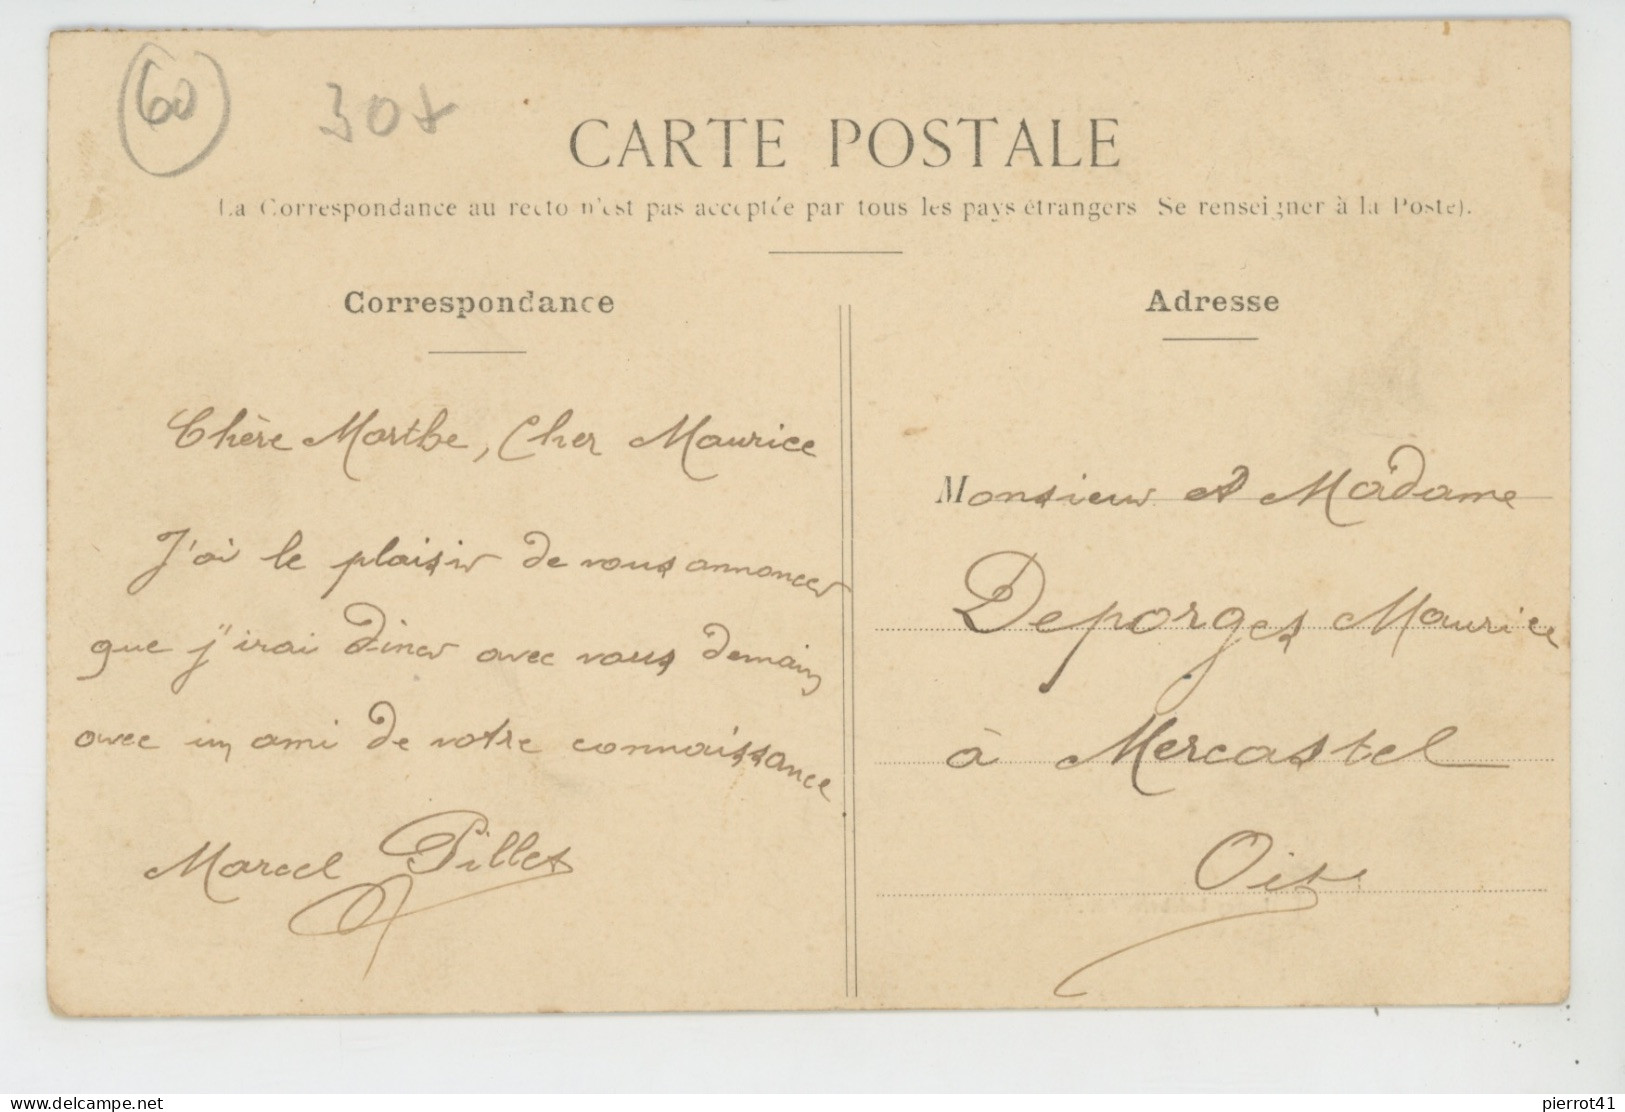 60
30
CARTE POSTALE
La Correspondance au recto n'est pas acceptée par tous les pays étrangers Se renseigner à la Poste).
Correspondance
Adresse
Chère Marthe, Cher Maurice
J'ai le plaisir de vous annoncer
que j'irai diner avec vous demain
avec un ami de votre connaissance
Marcel Pillet
Monsieur et Madame
Deporges Maurice
à Mercastel
Oise
delcampe.net
pierrot41